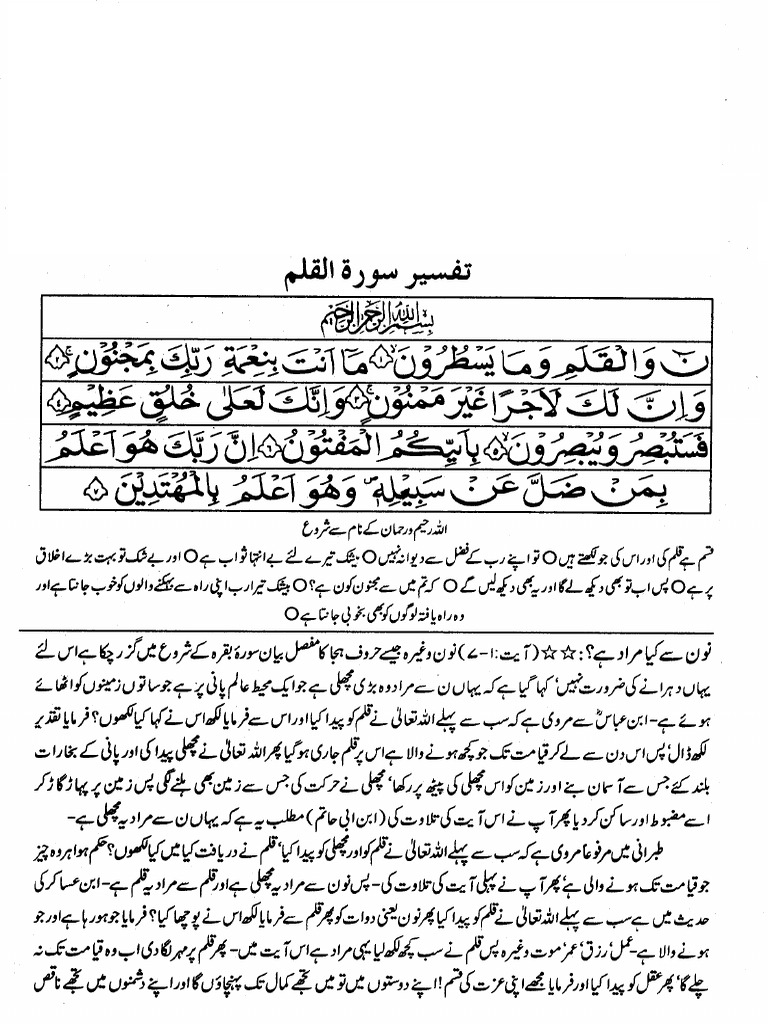 تفسیر سورۃ القلم
بِسْمِ اللّٰهِ الرَّحْمٰنِ الرَّحِيْمِ
نٓ وَالْقَلَمِ وَمَا يَسْطُرُوْنَ ۙ‏﴿۱﴾ مَاۤ اَنْتَ بِنِعْمَةِ رَبِّكَ بِمَجْنُوْنٍ ۚ‏﴿۲﴾
وَاِنَّ لَكَ لَاَجْرًا غَيْرَ مَمْنُوْنٍ ۚ‏﴿۳﴾ وَاِنَّكَ لَعَلٰى خُلُقٍ عَظِيْمٍ ‏﴿۴﴾
فَسَتُبْصِرُ وَيُبْصِرُوْنَ ۙ‏﴿۵﴾ بِاَيِّكُمُ الْمَفْتُوْنُ ‏﴿۶﴾ اِنَّ رَبَّكَ هُوَ اَعْلَمُ
بِمَنْ ضَلَّ عَنْ سَبِيْلِهٖ ۪ وَهُوَ اَعْلَمُ بِالْمُهْتَدِيْنَ ‏﴿۷﴾
اللہ رحیم ورحمان کے نام سے شروع
قسم ہے قلم کی اور اس کی جو لکھتے ہیں ○ تو اپنے رب کے فضل سے دیوانہ نہیں ○ بیشک تیرے لئے بے انتہا ثواب ہے ○ اور بے شک تو بہت بڑے اخلاق
پر ہے ○ پس اب تو بھی دیکھ لے گا اور یہ بھی دیکھ لیں گے ○ کہ تم میں سے مجنون کون ہے؟ ○ بیشک تیرا رب اپنی راہ سے بہکنے والوں کو خوب جانتا ہے اور
وہ راہ یافتہ لوگوں کو بھی بخوبی جانتا ہے ○
نون سے کیا مراد ہے؟: ☆☆ (آیت:۱-۷) نون وغیرہ جیسے حروف ہجا کا مفصل بیان سورۂ بقرہ کے شروع میں گزر چکا ہے اس لئے
یہاں دہرانے کی ضرورت نہیں‘ کہا گیا ہے کہ یہاں ن سے مراد وہ بڑی مچھلی ہے جو ایک محیط عالم پانی پر ہے جو ساتوں زمینوں کو اٹھائے
ہوئے ہے- ابن عباسؓ سے مروی ہے کہ سب سے پہلے اللہ تعالیٰ نے قلم کو پیدا کیا اور اس سے فرمایا لکھ اس نے کہا کیا لکھوں؟ فرمایا تقدیر
لکھ ڈال‘ پس اس دن سے لے کر قیامت تک جو کچھ ہونے والا ہے اس پر قلم جاری ہو گیا پھر اللہ تعالیٰ نے مچھلی پیدا کی اور پانی کے بخارات
بلند کئے جس سے آسمان بنے اور زمین کو اس مچھلی کی پیٹھ پر رکھا‘ مچھلی نے حرکت کی جس سے زمین بھی ہلنے لگی پس زمین پر پہاڑ گاڑ کر
اسے مضبوط اور ساکن کر دیا پھر آپ نے اس آیت کی تلاوت کی (ابن ابی حاتم) مطلب یہ ہے کہ یہاں ن سے مراد یہ مچھلی ہے-
طبرانی میں مرفوعاً مروی ہے کہ سب سے پہلے اللہ تعالیٰ نے قلم کو اور مچھلی کو پیدا کیا‘ قلم نے دریافت کیا میں کیا لکھوں؟ حکم ہوا ہر وہ چیز
جو قیامت تک ہونے والی ہے‘ پھر آپ نے پہلی آیت کی تلاوت کی- پس نون سے مراد یہ مچھلی ہے اور قلم سے مراد یہ قلم ہے- ابن عساکر کی
حدیث میں ہے سب سے پہلے اللہ تعالیٰ نے قلم کو پیدا کیا پھر نون یعنی دوات کو پھر قلم سے فرمایا لکھ اس نے پوچھا کیا؟ فرمایا جو ہو رہا ہے اور جو
ہونے والا ہے- عمل‘ رزق‘ عمر‘ موت وغیرہ پس قلم نے سب کچھ لکھ لیا یہی مراد ہے اس آیت میں- پھر قلم پر مہر لگا دی اب وہ قیامت تک نہ
چلے گا‘ پھر عقل کو پیدا کیا اور فرمایا مجھے اپنی عزت کی قسم! اپنے دوستوں میں تو میں تجھے کمال تک پہنچاؤں گا اور اپنے دشمنوں میں تجھے ناقص